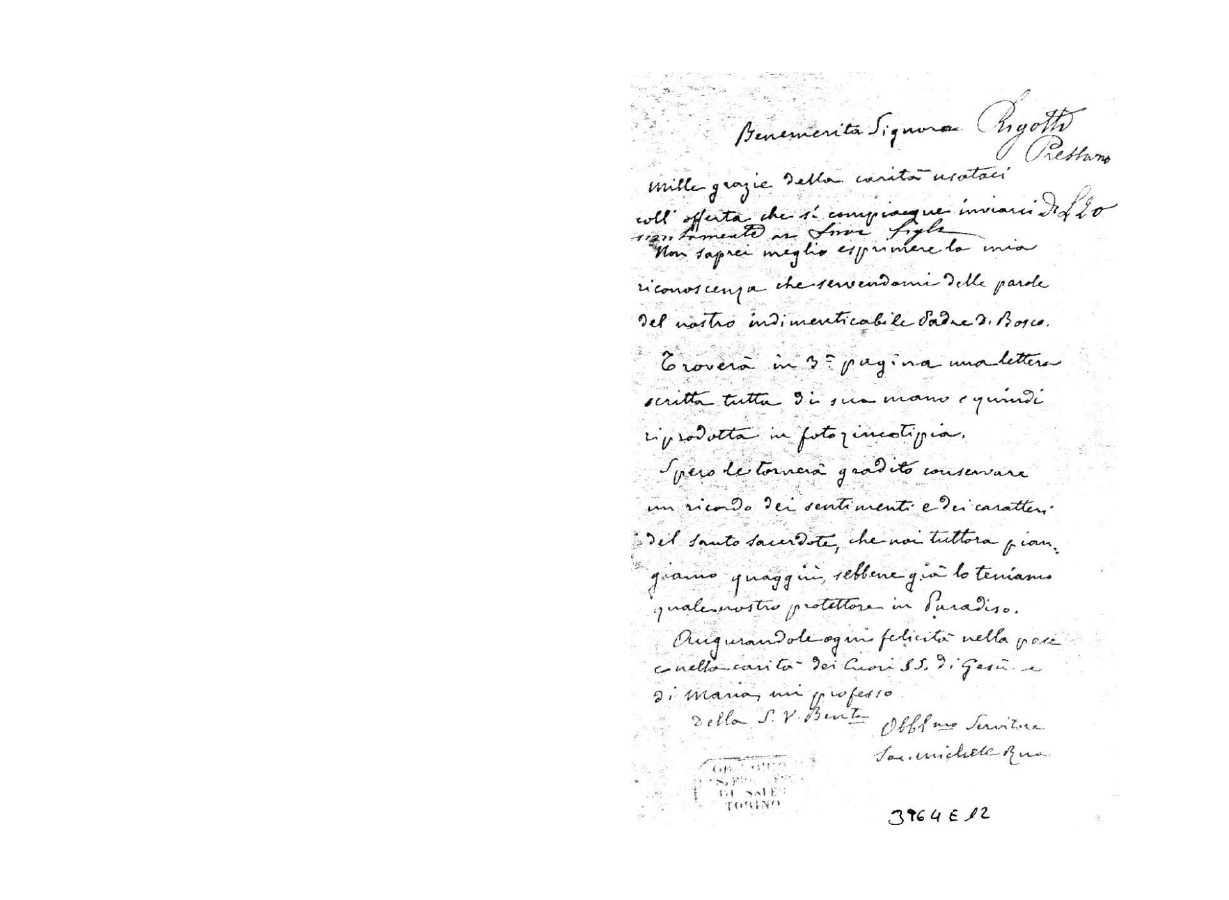 Benemerita Signora Rigotti
Pressano
Mille grazie della carità usataci
coll' offerta che si compiacque inviarci di L 20
Non saprei meglio esprimere la mia
riconoscenza che servendomi delle parole
del nostro indimenticabile Padre D. Bosco.
Troverà in 3ª pagina una lettera
scritta tutta di sua mano e quindi
riprodotta in fotozincotipia.
Spero le tornerà gradito conservare
un ricordo dei sentimenti e dei caratteri
del santo sacerdote, che noi tuttora pian-
giamo quaggiù, sebbene già lo teniamo
quale nostro protettore in Paradiso.
Augurandole ogni felicità nella pace
e nella carità dei Cuori SS. di Gesù e
di Maria, mi professo
della S. V. Benta
Obblmo Servitore
Sac. Michele Rua
DI SALES
TORINO
3964 E 12